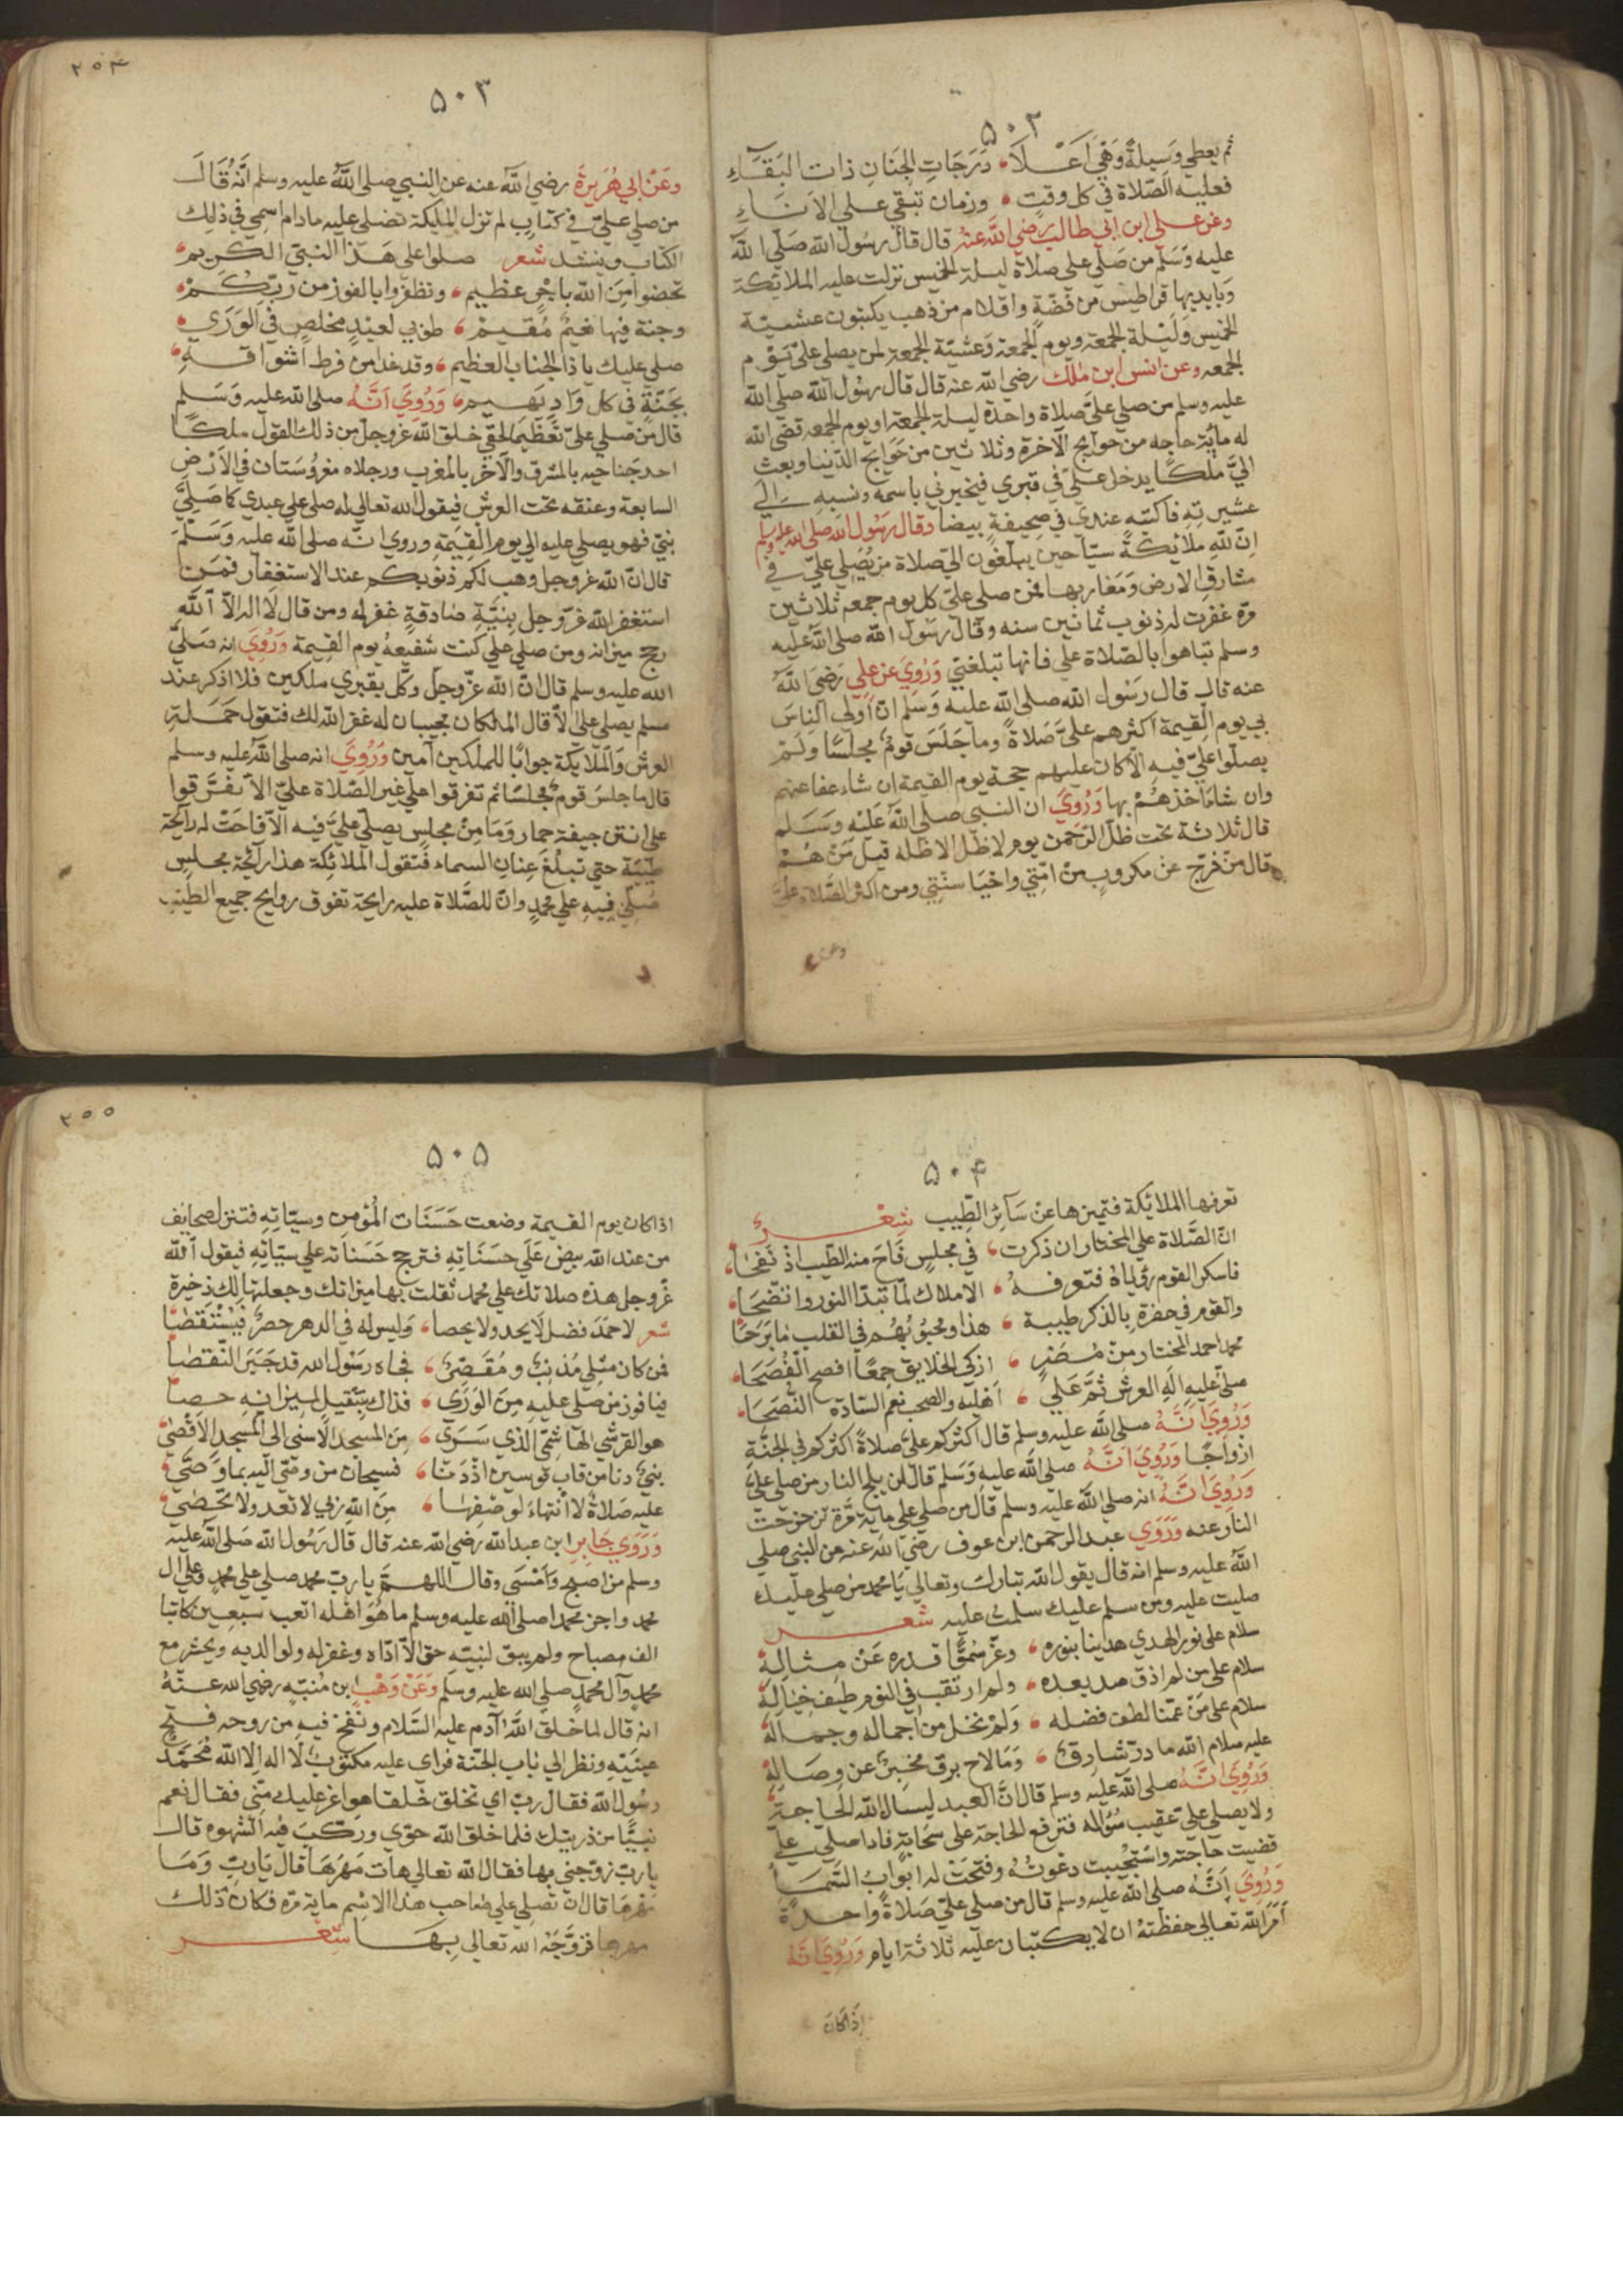 ۵۰۲
ثم يعطي وسيلةً وهي أعلا دَرَجَاتِ الجنَانِ ذات البَقَاءِ
فعليه الصّلاة في كل وقتٍ وزمان تبقي علي الآنَاءِ
وعن علي ابن ابي طالب رضي الله عنه قال قال رسُول الله صَلّي الله
عليه وَسَلّم من صَلّي علي صلاة ليلة الخميس نزلت عليه الملائكة
وَبايديها قراطيس من فضّةٍ واقلام من ذهب يكتبون عشيّة
الخميس وَليْلة الجمعة ويوم الجمعة وَعشيّة الجمعة لمن يصلي عليّ يَوْم
الجمعه وعن انس ابن مٰلك رضي الله عنه قال قال رسُول الله صلي الله
عليه وسلم من صلي عليَّ صلاة واحدة ليلة الجمعة او يوم الجمعه قضي الله
له مائة حاجه من حوايج الآخرة وثلاثين من حَوَايج الدّنيا وبعث
اليَّ ملكًا يدخل عليّ في قبري فيخبرني باسمه ونسبه الي
عشيرته فاكتبه عندي في صحيفةٍ بيضا وقال رسُول الله صلي الله عليه وسلم
انّ للهِ ملائكةً سيّاحين يبلّغون اليّ صلاة من يُصَلِّي عليّ في
مشارق الارض وَمَغاربها فمن صلي عليّ كل يوم جمعه ثلاثين
مرة غفرت له ذنوب ثمانين سنه وقال رسُول الله صلي الله عليه
وسلم تباهوا بالصّلاة علي فانها تبلغني وَرُوِيَ عن علي رَضيَ اللهُ
عنه قال قال رسُول الله صلي الله عليه وسَلم انّ أولي الناس
بي يوم القيمة اكثرهم عليّ صَلاةً وما جَلَسَ قومٌ مجلسًا ولم
يصلّوا عليّ فيهِ الّا كان عليهم حجة يوم القيمة ان شاء عفا عنهم
وان شاءَ أخذهُمْ بها وَرُوِيَ ان النبي صلي الله عَليْه وَسَلم
قال ثلاثة تحت ظل الرّحمن يوم لا ظل الا ظله قيل مَنْ هُمْ
قال من فرّج عن مكروبٍ من امّتي واحْيَا سنّتي ومن اكثر الصَّلاة عليّ
وعن
٢٥٤
۵۰۳
وعَنْ أبي هُرَيرَةَ رضي الله عنه عن النبي صلي اللهُ عليه وسلم أنَّهُ قَالَ
من صلي عليّ في كتابٍ لم تزل المليكة تصلي عليه مادام اسمي في ذلك
الكتاب وينشد شعر صلوا علي هَذا النبيّ الكريم
تحضوا مِنَ الله باجرٍ عظيم وتظفروا بالفوز من ربّكُمْ
وجنة فيها نعيمٌ مُقيمْ طوبي لعبدٍ مخلصٍ في الوَرَي
صلي عليك يا ذا الجناب العظيم وقد غدا من فرط اشواقهِ
بجَنّةٍ في كل وَادٍ يَهيم وَرُوِيَ اَنَّهُ صلي الله عليه وَسَلم
قال من صلي عليّ تعَظيمًا لحقي خلق الله عز وجل من ذلك القول ملكًا
احد جَناحيه بالمشرق والآخر بالمغرب ورجلاه مغروُستان في الاَرْض
السابعة وعنقه تحت العرش فيقول الله تعالي له صلي علي عبدي كما صَلِيَّ
نبيّ فهو يصلي عليه الي يوم القيمةِ وروي انّه صلي الله عليه وَسَلّمَ
قال انّ الله عز وجل وهب لكم ذنوبكم عند الاستغفار فمن
استغفر الله عزّ وجل بِنيّةٍ صَادقةٍ غفر له ومن قال لَا اله الّا اللهُ
رجح ميزانه ومن صلي علي كنت شفيعهُ يوم القيمة وَرُوِيَ انه صَليّ
الله عليه وسلم قال انّ الله عزّ وجلّ وكّل بقبري ملكين فلا اذكر عند
مسلم يصلي عليّ الاّ قال الملكان مجيبان له غفر الله لك فتقول حَمَلةِ
العرش وَالملآيكة جوابًا للملكين آمين وَرُوِيَ انه صلي اللهُ عليه وسلم
قال ما جلسَ قومٌ مجلسًا ثم تفرقوا علي غير الصّلاة عليّ الاّ تفرّقوا
علي انتن جيفة حمار وَمَا مِنْ مجلسٍ يصلّي عليَّ فيه الاّ فاحَتْ له رَآيحة
طيّبة حتي تبلغ عِنان السماء فتقول الملائكة هذا رآئحة مجلسٍ
صُلّي فيهِ علي محمدٍ وانّ للصَّلاة عليه رايحة تفوق روايح جميع الطيب
۵۰۴
تعرفها الملائيكة فتميزها عنْ سَآئر الطّيب شِعْر
انّ الصَّلاة علي المختار ان ذكرت في مجلسٍ فَاحَ منه الطّيب اذ نَفَحَا
فاسكر القوم ريّاهُ فتعرفهُ الاملاك لمّا تبدّا النور واتّضَحَا
والقوم في حضرةٍ بالذكر طيبة هذا ومحبوُبُهُم في القلب مَا بَرَحَا
محمد احمد المختار من مُضَرٍ ازكي الخلايق جمعًا افصح الفُصَحَا
صلي عليهِ الَه العرش ثمَّ علي اَهْليه والصحب نعم السّادة النُّصَحَا
وَرُوِيَ انّهُ صلي الله عليه وسلم قال اكثركم عليّ صلاةً اكثركم في الجنَّةِ
ازواجًا وَرُوِيَ انّهُ صلي الله عليهِ وَسَلم قال لن يلج النار من صلي عليّ
وَرُوِيَ انّهُ انه صلي الله عليه وسلم قال من صلي علي ماية مَرَّةٍ تزحزحت
النار عنه وَرَوَي عبد الرحمن ابن عوف رضي الله عنه عن النبي صلي
اللهُ عليه وسلم انه قال يقول الله تبارك وتعالي يَا محمد من صلي عليك
صليت عليه ومن سلم عليك سلمتُ عليه شعر
سلام علي نور الهدي هدينا بنوره وعزّ سُمُوًّا قدره عَنْ مثالهِ
سلام علي من لم اذق صد بعده ولم ارتقب في النوم طيف خياله
سلام علي مَن عمّنا لطف فضله وَلمْ نخل من اجماله وجماله
عليه سلام الله ما درّ شارقٌ وَمَا لاح برق مخبرٌ عن وِصَالِهِ
وَرُوِيَ انّهُ صلي الله عليه وسلم قال انّ العبد ليسال الله الحاجة
ولا يصلي عليّ عقيب سُؤاله فترفع الحاجة علي سَحَابةٍ فاذا صلي عليّ
قضيت حاجته واستجيبت دعْوتُهُ وفتحَتْ له ابوابُ السَّمَا
وَرُوِيَ انَّهُ صلي الله عليه وسلم قال من صلي عليّ صَلاةً واحدةً
اَمَرَ الله تعالي حفظته ان لا يكتبان عليه ثلاثة ايام وَرُوِيَ انَّهُ
اذا كان
٢٥٥
۵۰۵
اذا كان يوم القيمة وضعت حَسَنَات المُؤمن وسيّاتِهِ فتنزل صحايف
من عند الله بيض عَلَي حسَنَاتِهِ فترجح حَسَناته علي سيّاتِهِ فيقول الله
عزّ وجل هذه صلاتك علي محمد ثقلت بها ميزانك وجعلتها لك ذخيرة
شعر لاحمَدَ فضل لَا يحد ولا يحصا وَليس له في الدهر حصرٌ فيُسْتَقصَا
فمن كان مثلي مُذنبٌ ومُقَصّرٌ فجاه رسُول الله قد جَبَرَ النّقصَا
فيا فوز من صلي عليهِ مِنَ الوَرَي فذاك بتثقيلٍ لميزانهِ حصا
هو القرشي الهَاشميّ الذي سَرَي مِنَ المسجد الاَسْنَي الي المسجد الاقصَي
نبيّ دنا من قاب قوسين اذ دَنا فسبحان من وصّي اليه بما وَصّيَ
عليه صَلاةٌ لا انتهاءَ لوصْفِهَا مِنَ اللهِ ربي لا تعد ولا تحصَي
وَرَوَي جَابِر ابن عبد الله رضي الله عنه قال قال رَسُول الله صَلي الله عليه
وسلم من اصبح وَاَمْسَي وقال اللهمّ يا ربّ محمد صلي علي محمدٍ وعلي آل
محمد واجز محمدا صلي الله عليه وسلم ما هُوَ اهْله اتعب سبعين كاتبا
الف صباح ولم يبق لنبيّه حق الاّ ادّاه وغفر له ولوالديه ويحشر مع
محمدٍ وآل محمدٍ صلي الله عليه وسلم وَعَنْ وَهْبِ ابن مُنبّهٍ رضي الله عنهُ
انه قال لما خلَقَ اللهُ آدم عليه السَّلام ونفخ فيه من روحه فتح
عينيّه ونظر الي باب الجنّة فراي عليه مكتوبٌ لَا اله الا الله مُحَمّد
رسُول الله فقال ربّ اي تخلق خلقا هو اعز عليك منّي فقال نعم
نبيًّا من ذريتك فلما خلق الله حوّي وركّبَ فيه الشهوه قال
يا ربّ زوّجني بها فقال الله تعالي هات مَهْرَهَا قالَ يَا ربّ وَمَا
مهرهَا قال ان تصلي علي صَاحب هذا الاسْم ماية مرّه فكان ذلك
مهرها فزوّجَهُ الله تعالي بِهَا شعر